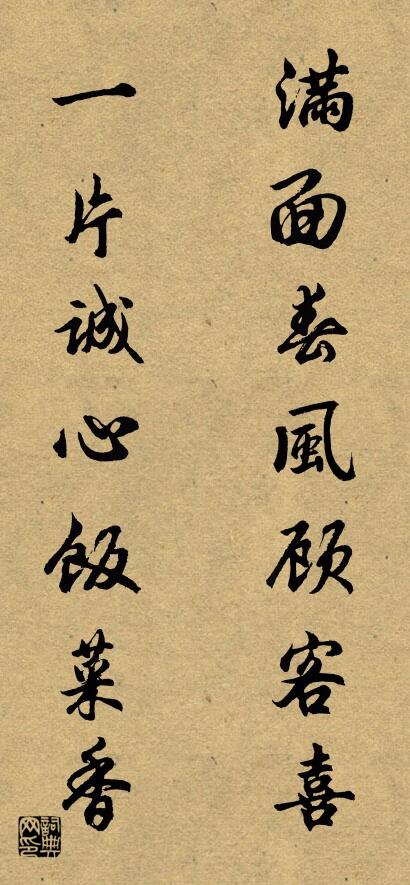 满面春風顾客喜
一片誠心飯菜香
詞典
网印